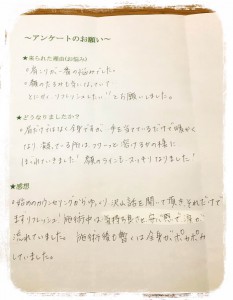 ～アンケートのお願い～
★来られた理由(お悩み)
。肩こりが一番の悩みでした。
。顔のたるみも気になっていて
とにかく リフレッシュしたい！とお願いしました。
★どうなりましたか？
。肩だけではなく全身ですが、手を当てているだけで暖かく
なり 凝っている所は、フワーッと溶けるかの様に
ほぐれていきました！顔のラインも スッキリなりました
★感想
。始めのカウンセリングからゆっくり 沢山話を聞いて頂き、それだけで
まずリフレッシュ！施術中は気持ち良さと
流れていました。施術後も暫くは全身がポカポカ
していました。